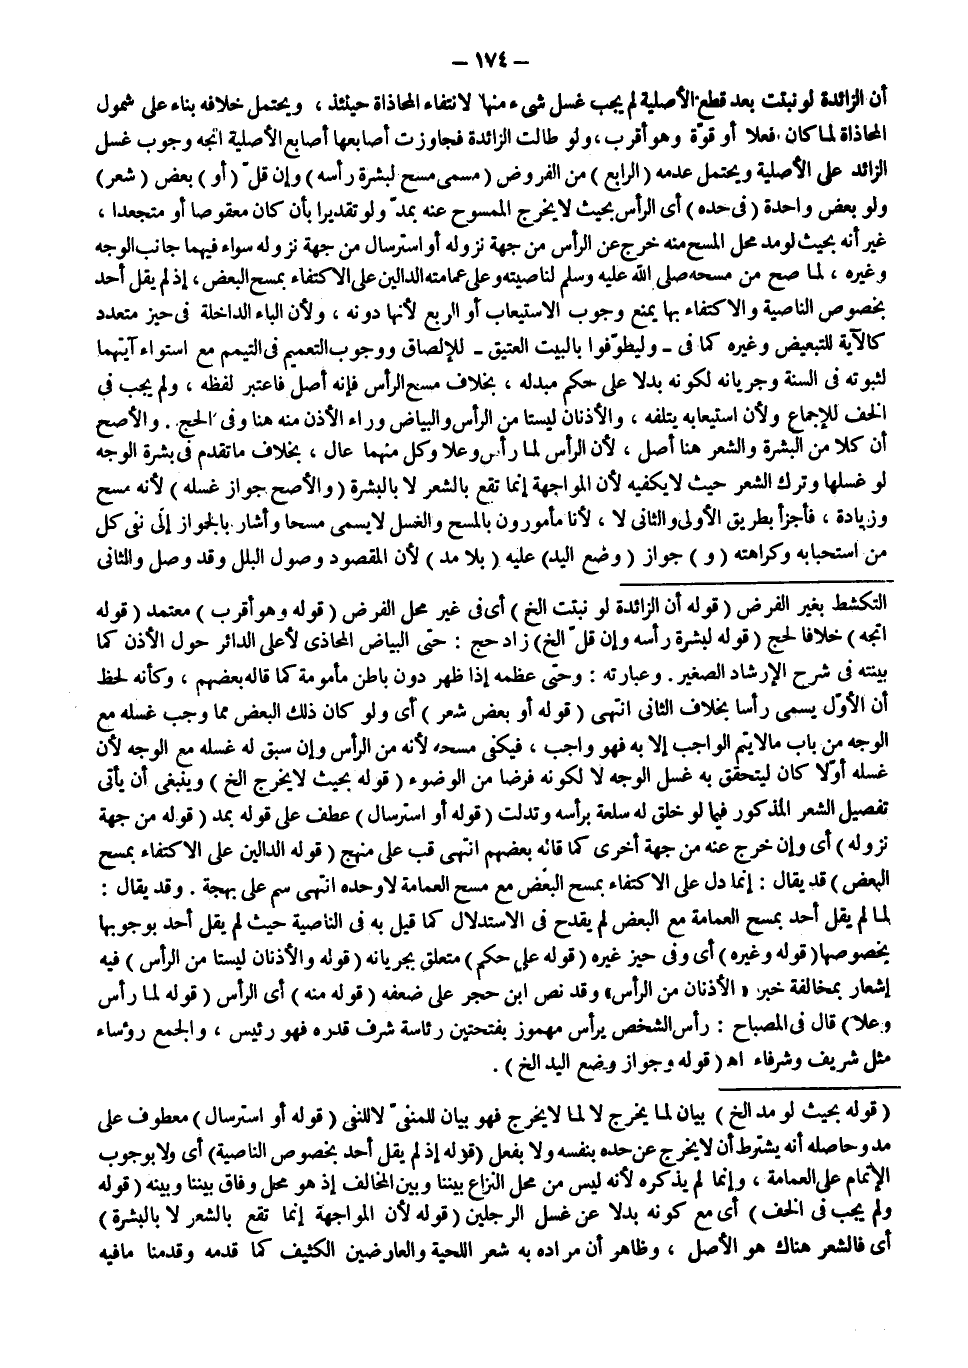 – ١٧٤ –
أن الزائدة لو نبتت بعد قطع الأصلية لم يجب غسل شىء منها لانتفاء المحاذاة حينئذ ، ويحتمل خلافه بناء على شمول
المحاذاة لما كان فعلا أو قوّة وهو أقرب ، ولو طالت الزائدة فجاوزت أصابعها أصابع الأصلية اتجه وجوب غسل
الزائد على الأصلية ويحتمل عدمه ( الرابع ) من الفروض ( مسمى مسح لبشرة رأسه ) وإن قلّ ( أو ) بعض ( شعر )
ولو بعض واحدة ( فى حده ) أى الرأس بحيث لا يخرج الممسوح عنه بمدّ ولو تقديرا بأن كان معقوصا أو متجعدا ،
غير أنه بحيث لو مد محل المسح منه خرج عن الرأس من جهة نزوله أو استرسال من جهة نزوله سواء فيهما جانب الوجه
وغيره ، لما صح من مسحه صلى الله عليه وسلم لناصيته وعلى عمامته الدالين على الاكتفاء بمسح البعض ، إذ لم يقل أحد
بخصوص الناصية والاكتفاء بها يمنع وجوب الاستيعاب أو الربع لأنها دونه ، ولأن الباء الداخلة فى حيز متعدد
كالآية للتبعيض وغيره كما فى ــ وليطوّفوا بالبيت العتيق ــ للإلصاق ووجوب التعميم فى التيمم مع استواء آيتهما
لثبوته فى السنة وجريانه لكونه بدلا على حكم مبدله ، بخلاف مسح الرأس فإنه أصل فاعتبر لفظه ، ولم يجب فى
الخف للإجماع ولأن استيعابه يتلفه ، والأذنان ليستا من الرأس والبياض وراء الأذن منه هنا وفى الحج . والأصح
أن كلا من البشرة والشعر هنا أصل ، لأن الرأس لما رأس وعلا وكل منهما عال ، بخلاف ما تقدم فى بشرة الوجه
لو غسلها وترك الشعر حيث لا يكفيه لأن المواجهة إنما تقع بالشعر لا بالبشرة ( والأصح جواز غسله ) لأنه مسح
وزيادة ، فأجزأ بطريق الأولى والثانى لا ، لأنا مأمورون بالمسح والغسل لا يسمى مسحا وأشار بالجواز إلى نفى كل
من استحبابه وكراهته ( و ) جواز ( وضع اليد ) عليه ( بلا مد ) لأن المقصود وصول البلل وقد وصل والثانى
التكشط بغير الفرض ( قوله أن الزائدة لو نبتت الخ ) أى فى غير محل الفرض ( قوله وهو أقرب ) معتمد ( قوله
اتجه ) خلافا لحج ( قوله لبشرة رأسه وإن قلّ الخ ) زاد حج : حتى البياض المحاذى لأعلى الدائر حول الأذن كما
بينته فى شرح الإرشاد الصغير . وعبارته : وحتى عظمه إذا ظهر دون باطن مأمومة كما قاله بعضهم ، وكأنه لحظ
أن الأوّل يسمى رأسا بخلاف الثانى انتهى ( قوله أو بعض شعر ) أى ولو كان ذلك البعض مما وجب غسله مع
الوجه من باب ما لا يتم الواجب إلا به فهو واجب ، فيكفى مسحه لأنه من الرأس وإن سبق له غسله مع الوجه لأن
غسله أوّلا كان ليتحقق به غسل الوجه لا لكونه فرضا من الوضوء ( قوله بحيث لا يخرج الخ ) وينبغى أن يأتى
تفصيل الشعر المذكور فيما لو خلق له سلعة برأسه وتدلت ( قوله أو استرسال ) عطف على قوله بمد ( قوله من جهة
نزوله ) أى وإن خرج عنه من جهة أخرى كما قاله بعضهم انتهى قب على منهج ( قوله الدالين على الاكتفاء بمسح
البعض ) قد يقال : إنما دل على الاكتفاء بمسح البعض مع مسح العمامة لا وحده انتهى سم على بهجة . وقد يقال :
لما لم يقل أحد بمسح العمامة مع البعض لم يقدح فى الاستدلال كما قيل به فى الناصية حيث لم يقل أحد بوجوبها
بخصوصها ( قوله وغيره ) أى وفى حيز غيره ( قوله على حكم ) متعلق بجريانه ( قوله والأذنان ليستا من الرأس ) فيه
إشعار بمخالفة خبر « الأذنان من الرأس » وقد نص ابن حجر على ضعفه ( قوله منه ) أى الرأس ( قوله لما رأس
وعلا ) قال فى المصباح : رأس الشخص يرأس مهموز بفتحتين رئاسة شرف قدره فهو رئيس ، والجمع رؤساء
مثل شريف وشرفاء اه ( قوله وجواز وضع اليد الخ ) .
( قوله بحيث لو مد الخ ) بيان لما يخرج لا لما لا يخرج فهو بيان للمنفىّ لا للنفى ( قوله أو استرسال ) معطوف على
مد وحاصله أنه يشترط أن لا يخرج عن حده بنفسه ولا بفعل ( قوله إذ لم يقل أحد بخصوص الناصية ) أى ولا بوجوب
الإتمام على العمامة ، وإنما لم يذكره لأنه ليس من محل النزاع بيننا وبين المخالف إذ هو محل وفاق بيننا وبينه ( قوله
ولم يجب فى الخف ) أى مع كونه بدلا عن غسل الرجلين ( قوله لأن المواجهة إنما تقع بالشعر لا بالبشرة )
أى فالشعر هناك هو الأصل ، وظاهر أن مراده به شعر اللحية والعارضين الكثيف كما قدمه وقدمنا مافيه